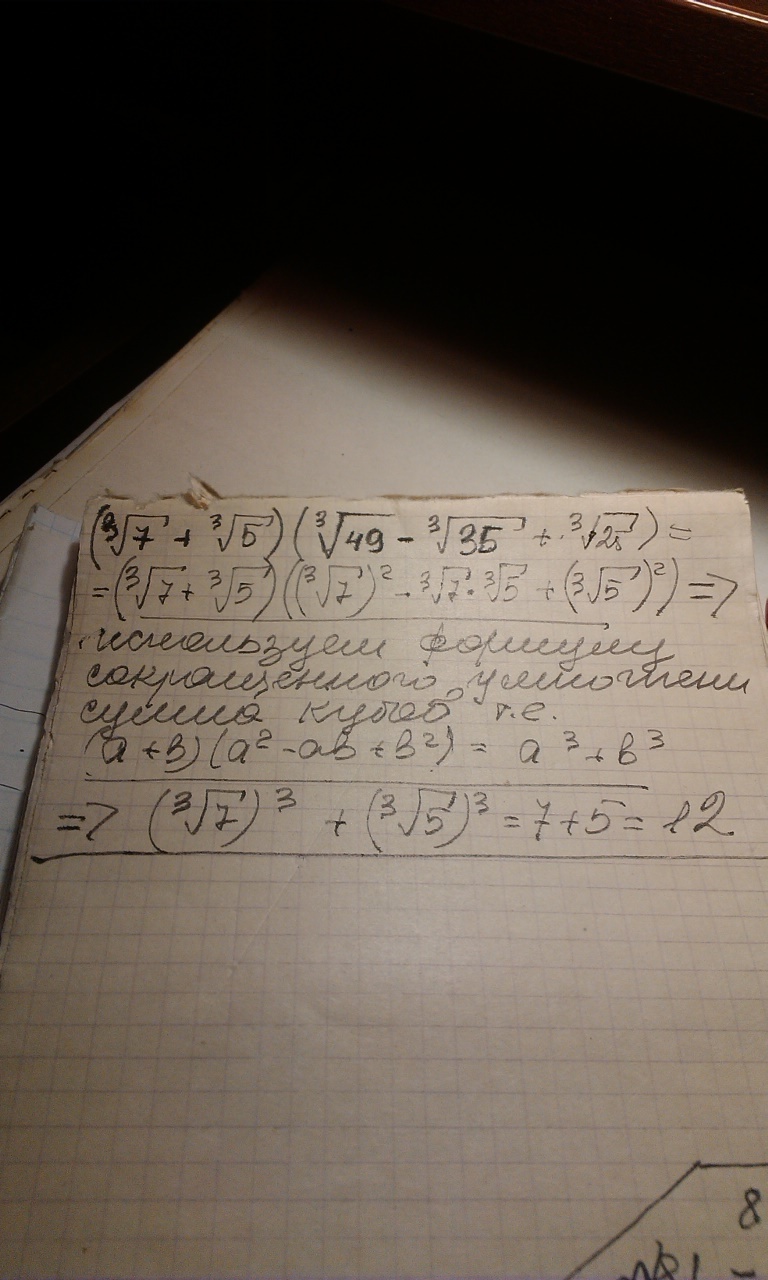 (∛7 + ∛5)(∛49 - ∛35 + ∛25) =
= (∛7 + ∛5)((∛7)² - ∛7 · ∛5 + (∛5)²) =>
используем формулу
сокращенного умножени
сумма кубов т.е.
(a + в)(a² - aв + в²) = a³ + в³
=> (∛7)³ + (∛5)³ = 7 + 5 = 12
8